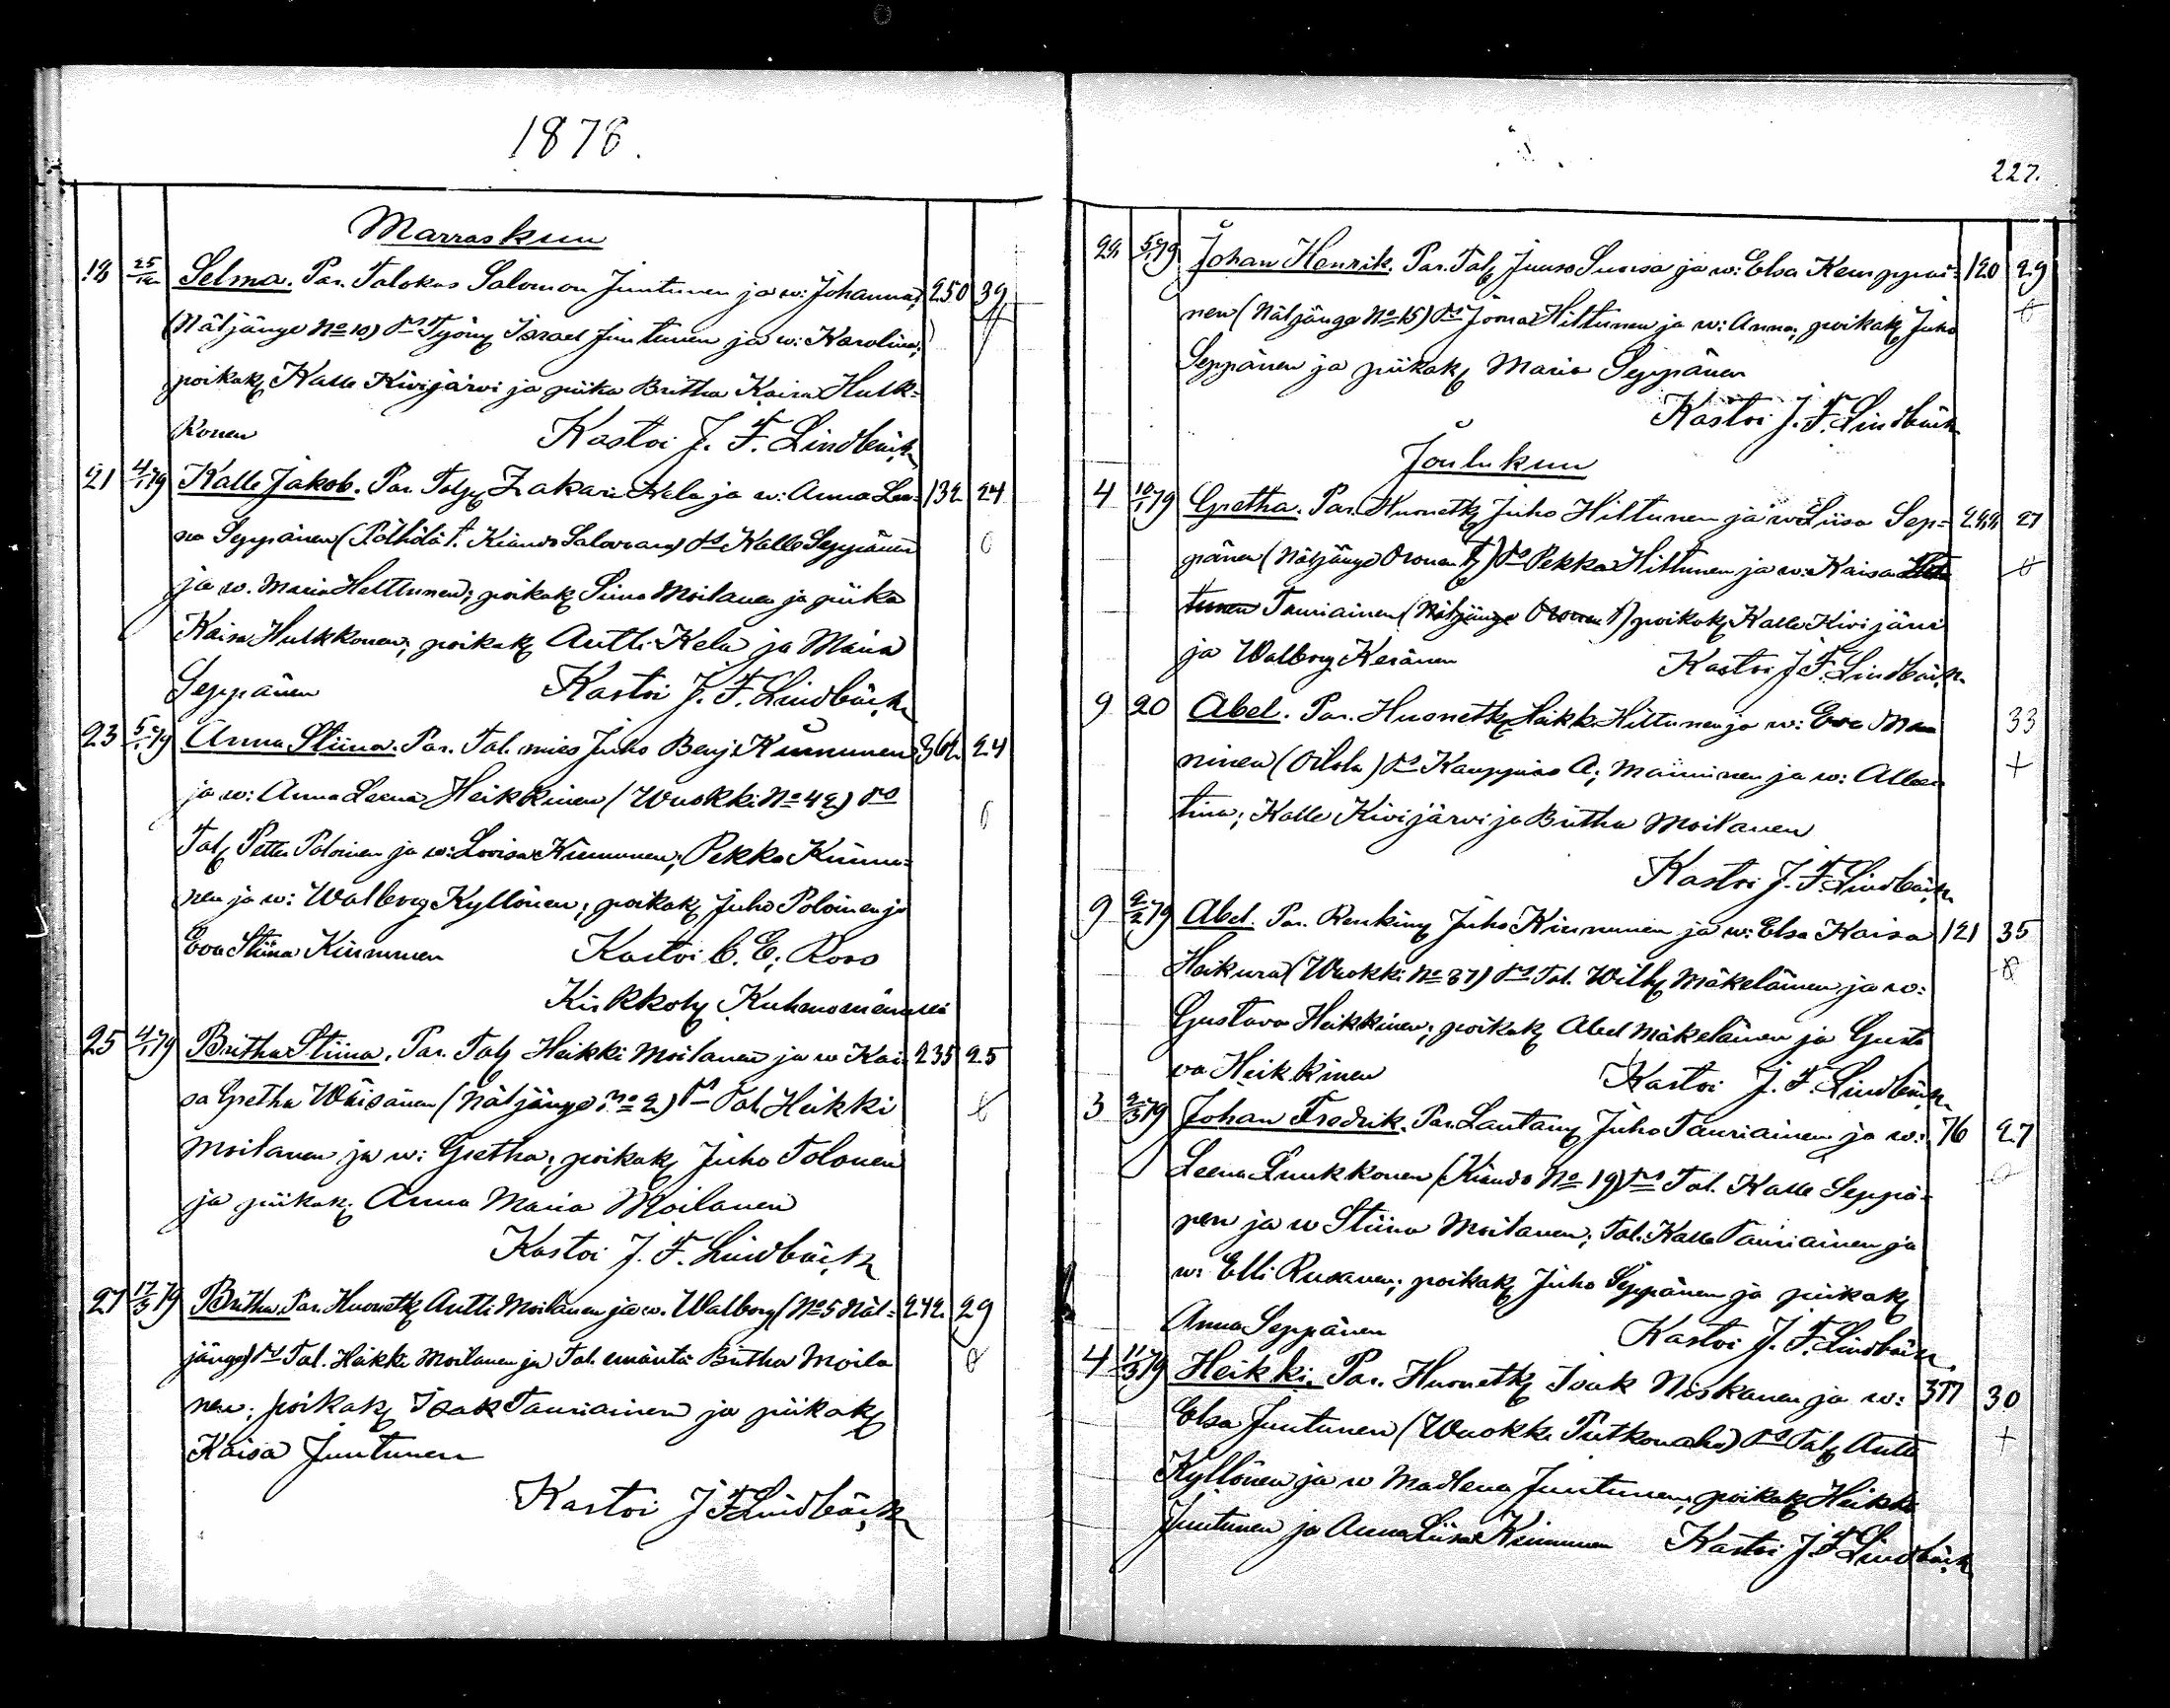 1878.
Marraskuu
18 25/12 Selma. Par. Talokas Salomon Juntunen ja w: Johanna, 250 39
(Nätjänge No 10) Ts Työmg Israel Juntunen ja w: Karolina;
poikakg Kalle Kivijärvi ja piika Britha Kaisa Hulk-
konen Kastoi J. F. Lindbäck
21 4/1 79 Kalle Jakob. Par. Talg Zakari Kela ja w: Anna Lee- 132 24
na Seppänen (Pölhölä t. Kiando Salovaara) Ts Kalle Seppänen
ja w. Maria Halttunen; poikakg Simo Moilanen ja piika
Kaisa Hulkkonen; poikakg Antti Kela ja Maria
Seppänen Kastoi J. F. Lindbäck
23 5/1 79 Anna Stiina. Par. Tal. mies Juho Benj: Kinnunen 362 24
ja w: Anna Leena Heikkinen (Wuokki No 42) Ts
Talg Petter Poloinen ja w: Lovisa Kinnunen; Pekka Kinnu-
nen ja w: Walborg Kyllönen; poikakg Juho Poloinen ja
Eva Stiina Kinnunen Kastoi C. E. Roos
Kirkkohg Kuhmoniemessä
25 4/1 79 Britha Stiina. Par. Talg Heikki Moilanen ja w Kai- 235 25
sa Gretha Wäisänen (Nätjänge No 2) Ts Tal. Heikki
Moilanen ja w: Gretha; poikakg Juho Tolonen
ja piikakg Anna Maria Moilanen
Kastoi J. F. Lindbäck
27 17/3 79 Britha. Par. Huonetkg Antti Moilanen ja w. Walborg (No 5 Nät- 242 29
jänge) Ts Tal. Heikki Moilanen ja Tal. emäntä Britha Moila
nen; poikakg Isak Tauriainen ja piikakg
Kaisa Juntunen
Kastoi J F Lindbäck
227.
29 5/1 79 Johan Henrik. Par. Talg Juuso Suorsa ja w: Elsa Kemppai- 120 29
nen (Nätjänge No 15) Ts Joonas Hiltunen ja w: Anna; poikakg Juho
Seppänen ja piikakg Maria Seppänen
Kastoi J. F. Lindbäck
Joulukuu
4 10/1 79 Gretha. Par. Huonetkg Juho Hiltunen ja w: Liisa Sep- 244 27
pänen (Nätjänge Oronen t) Ts Pekka Hiltunen ja w: Kaisa Hil
tunen Tauriainen (Nätjänge Oronen t) poikakg Kalle Kivijärvi
ja Walborg Keränen Kastoi J F. Lindbäck
9 20 Abel. Par. Huonetkg Heikk: Hiltunen ja w: Eva Man 33
ninen (Oilola) Ts Kauppias A; Manninen ja w: Alber
tina; Kalle Kivijärvi ja Britha Moilanen
Kastoi J. F. Lindbäck
9 2/2 79 Abel. Par. Renking Juho Kinnunen ja w: Elsa Kaisa 121 35
Heikura (Wuokki No 37) Ts Tal. Wilhg Mäkeläinen ja w:
Gustava Heikkinen; poikakg Abel Mäkeläinen ja Gusta
va Heikkinen Kastoi J. F. Lindbäck
3 2/3 79 Johan Fredrik. Par. Lautamg Juho Tauriainen ja w: 76 27
Leena Luukkonen (Kiando No 19) Ts Tal. Kalle Seppä-
nen ja w Stiina Moilanen; Tal. Kalle Tauriainen ja
w: Elli Rusanen; poikakg Juho Seppänen ja piikakg
Anna Seppänen Kastoi J. F. Lindbäck
4 11/3 79 Heikki. Par. Huonetkg Isak Niskanen ja w: 377 30
Elsa Juntunen (Wuokki Putkonaho) Ts Talg Antti
Kyllönen ja w Madlena Juntunen; poikakg Heikki
Juntunen ja Anna Liisa Kinnunen Kastoi J F Lindbäck